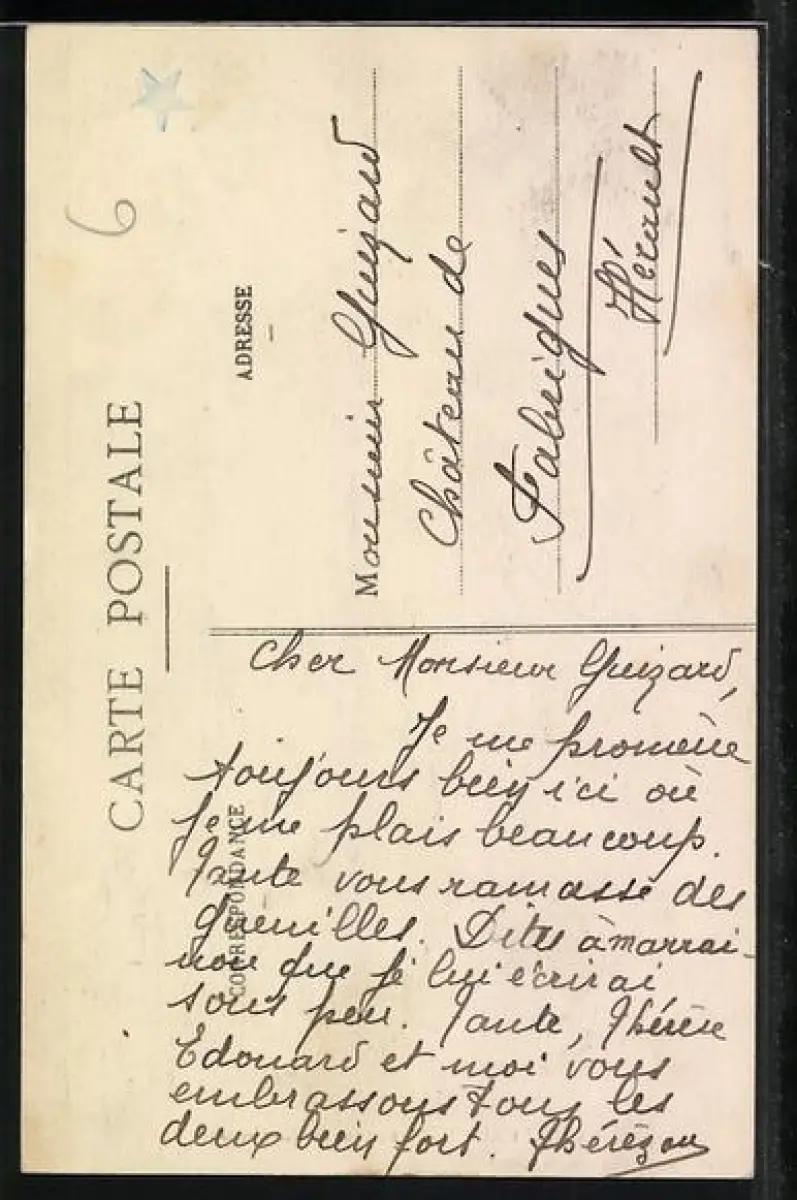 6
CARTE POSTALE
CORRESPONDANCE
ADRESSE
Monsieur Guizard
Château de
Fabrègues
Hérault
Cher Monsieur Guizard,
Je me promène
toujours bien ici où
je me plais beaucoup.
Tante vous ramasse des
guenilles. Dites à marrai-
non que je lui écrirai
sous peu. Tante, Thérèse
Edouard et moi vous
embrassons tous les
deux bien fort. Thérézou